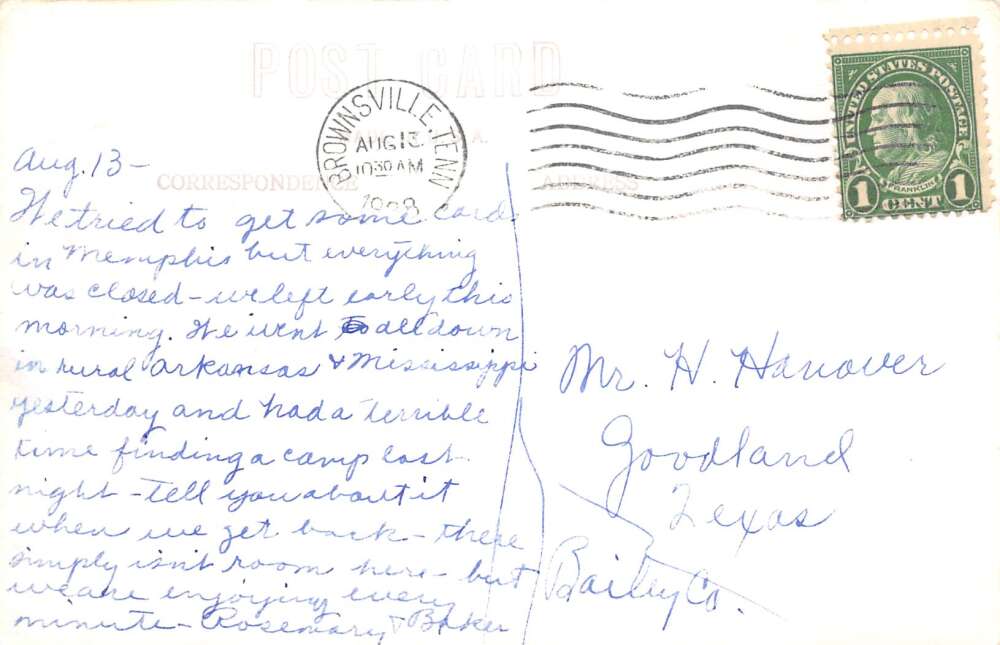 POST CARD
BROWNSVILLE, TENN
AUG 13
10 30 AM
UNITED STATES POSTAGE
FRANKLIN
1 CENT 1
CORRESPONDENCE
ADDRESS
Aug. 13 –
We tried to get some cards
in Memphis but everything
was closed – we left early this
morning. We went all down
in rural Arkansas & Mississippi
yesterday and had a terrible
time finding a camp last
night – tell you about it
when we get back – there
simply isn't room here – but
we are enjoying every
minute – Rosemary & Baker
Mr. H. Hanover
Goodland
Texas
Bailey Co.